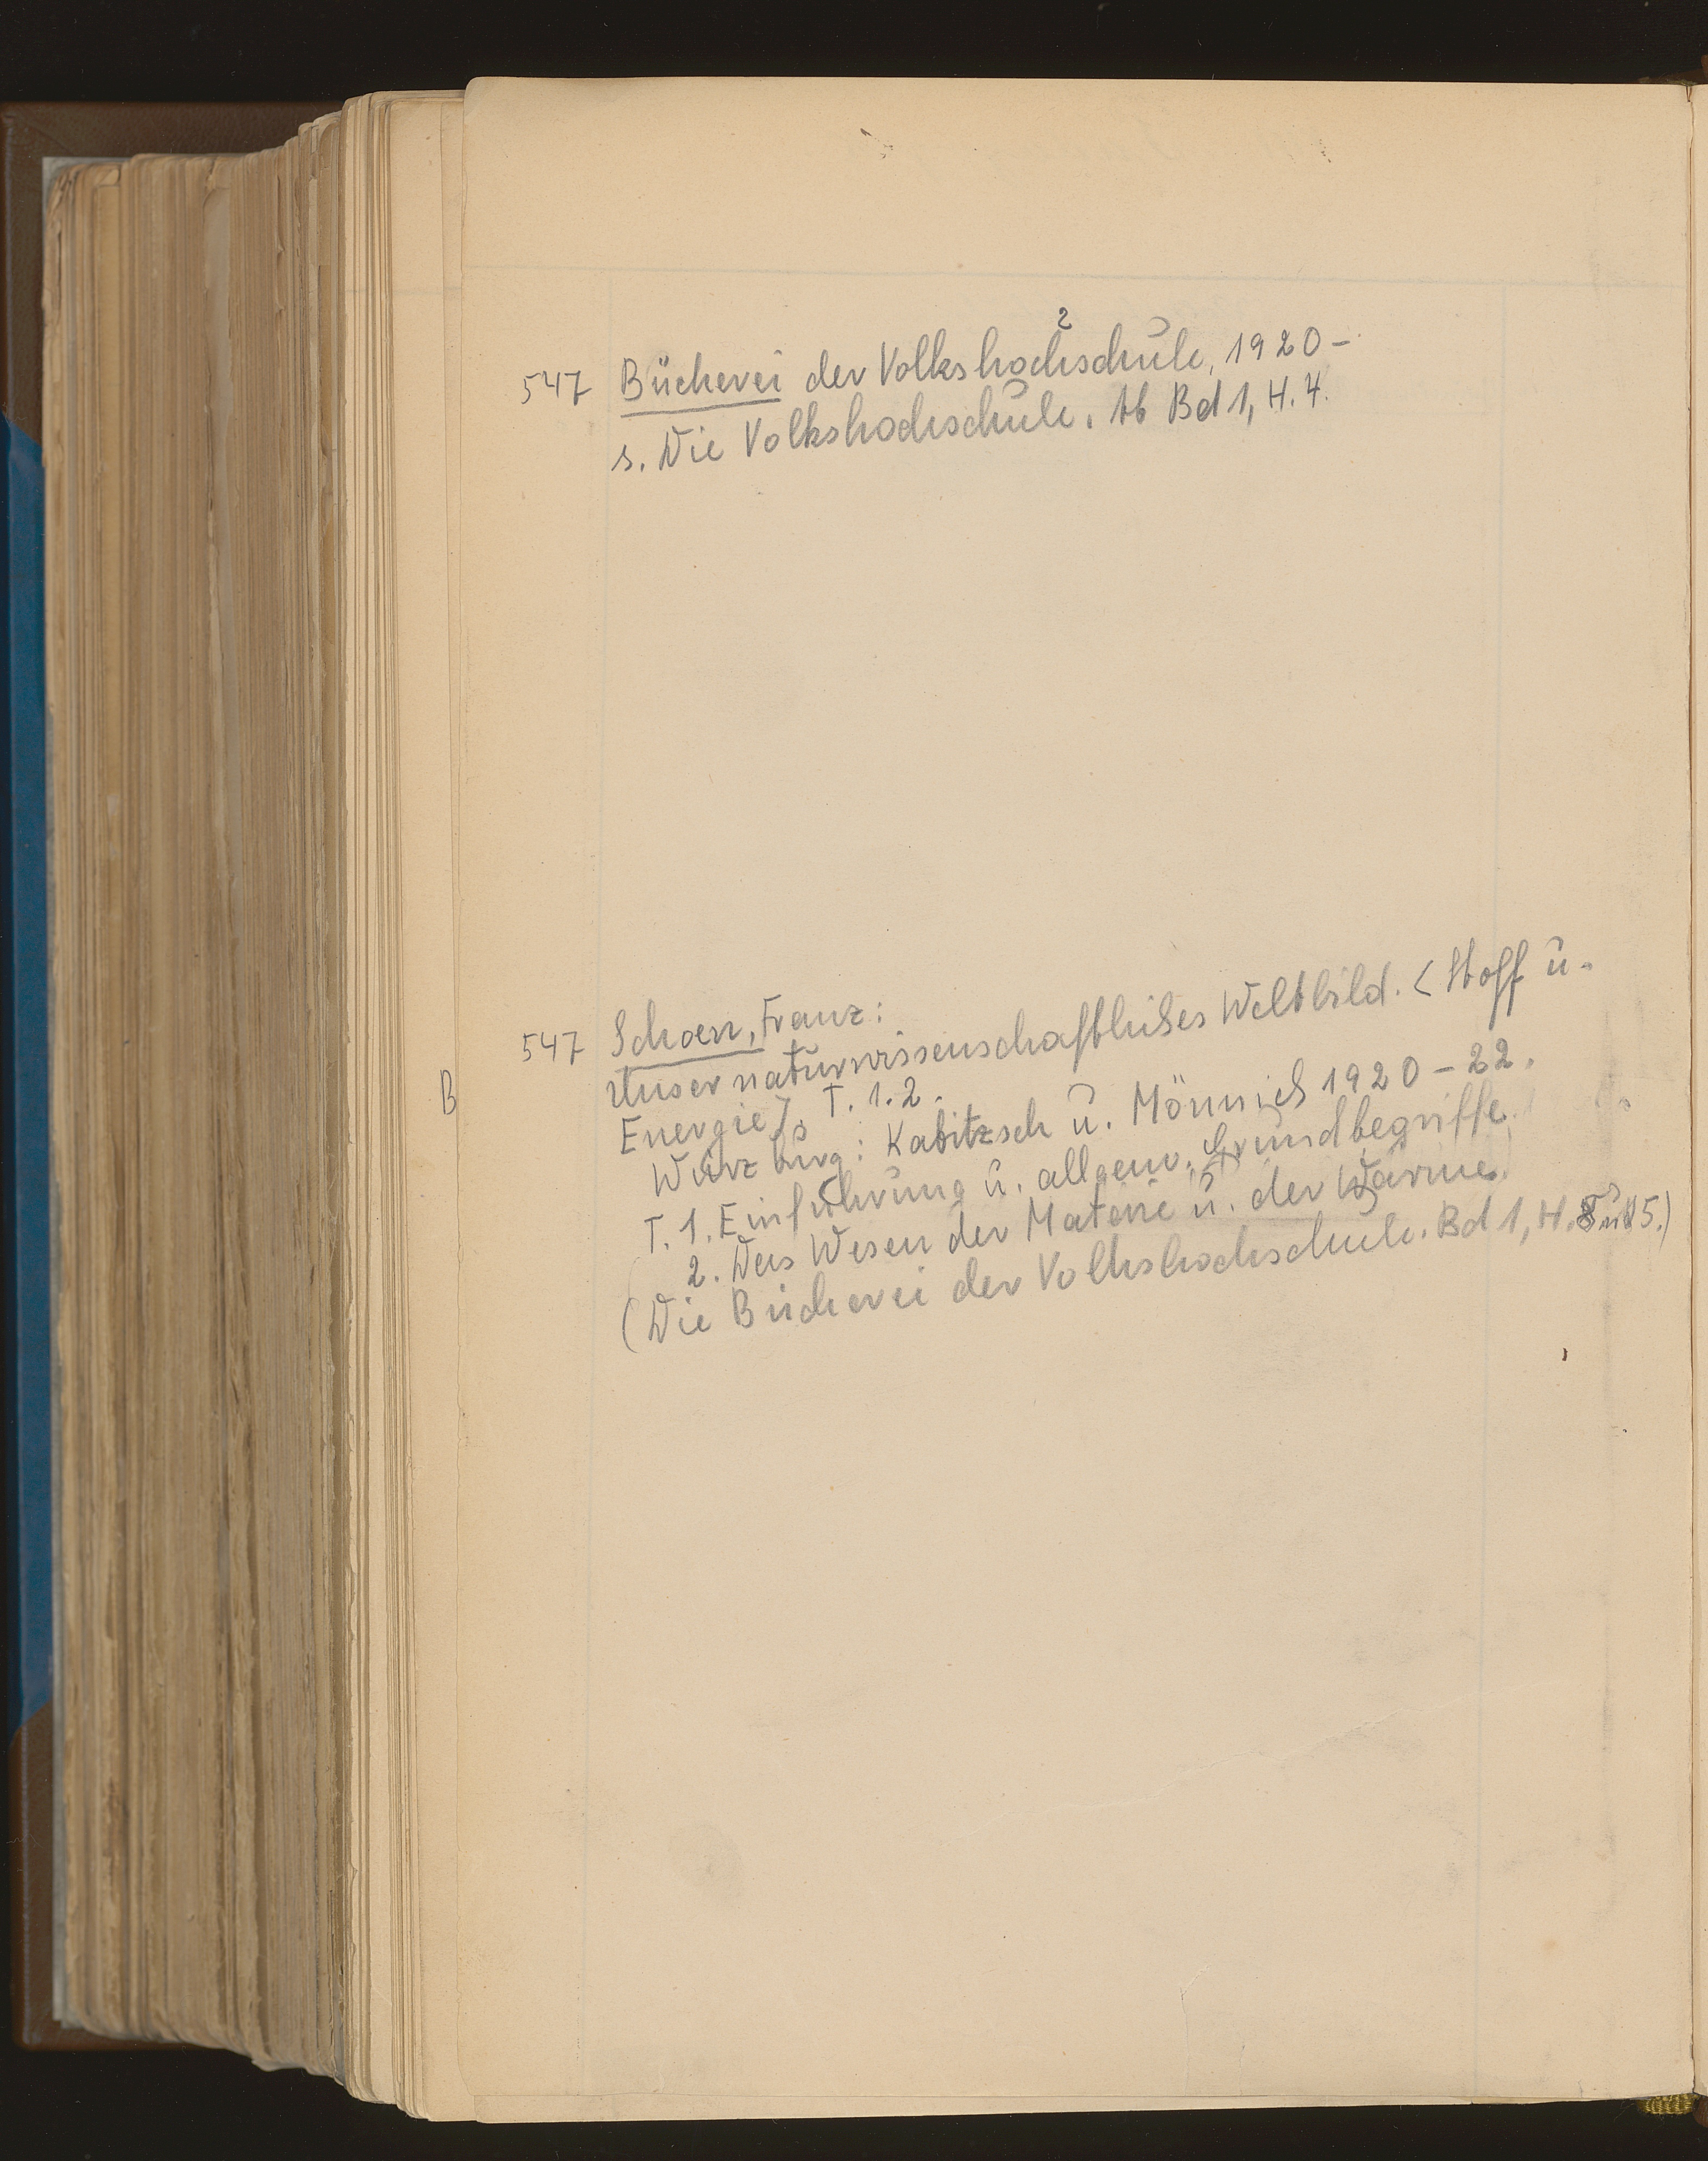 2
547 Bücherei der Volkshochschule, 1920 –
s. Die Volkshochschule. Ab Bd 1, H. 4.
547 Schoen, Franz:
Unser naturwissenschaftliches Weltbild. < Stoff u.
Energie >. T. 1. 2.
B
Würzburg: Kabitzsch u. Mönnich 1920 – 22.
T. 1. Einführung u. allgem. Grundbegriffe.
2. Das Wesen der Materie u. der Wärme.
(Die Bücherei der Volkshochschule. Bd 1, H. 15.)